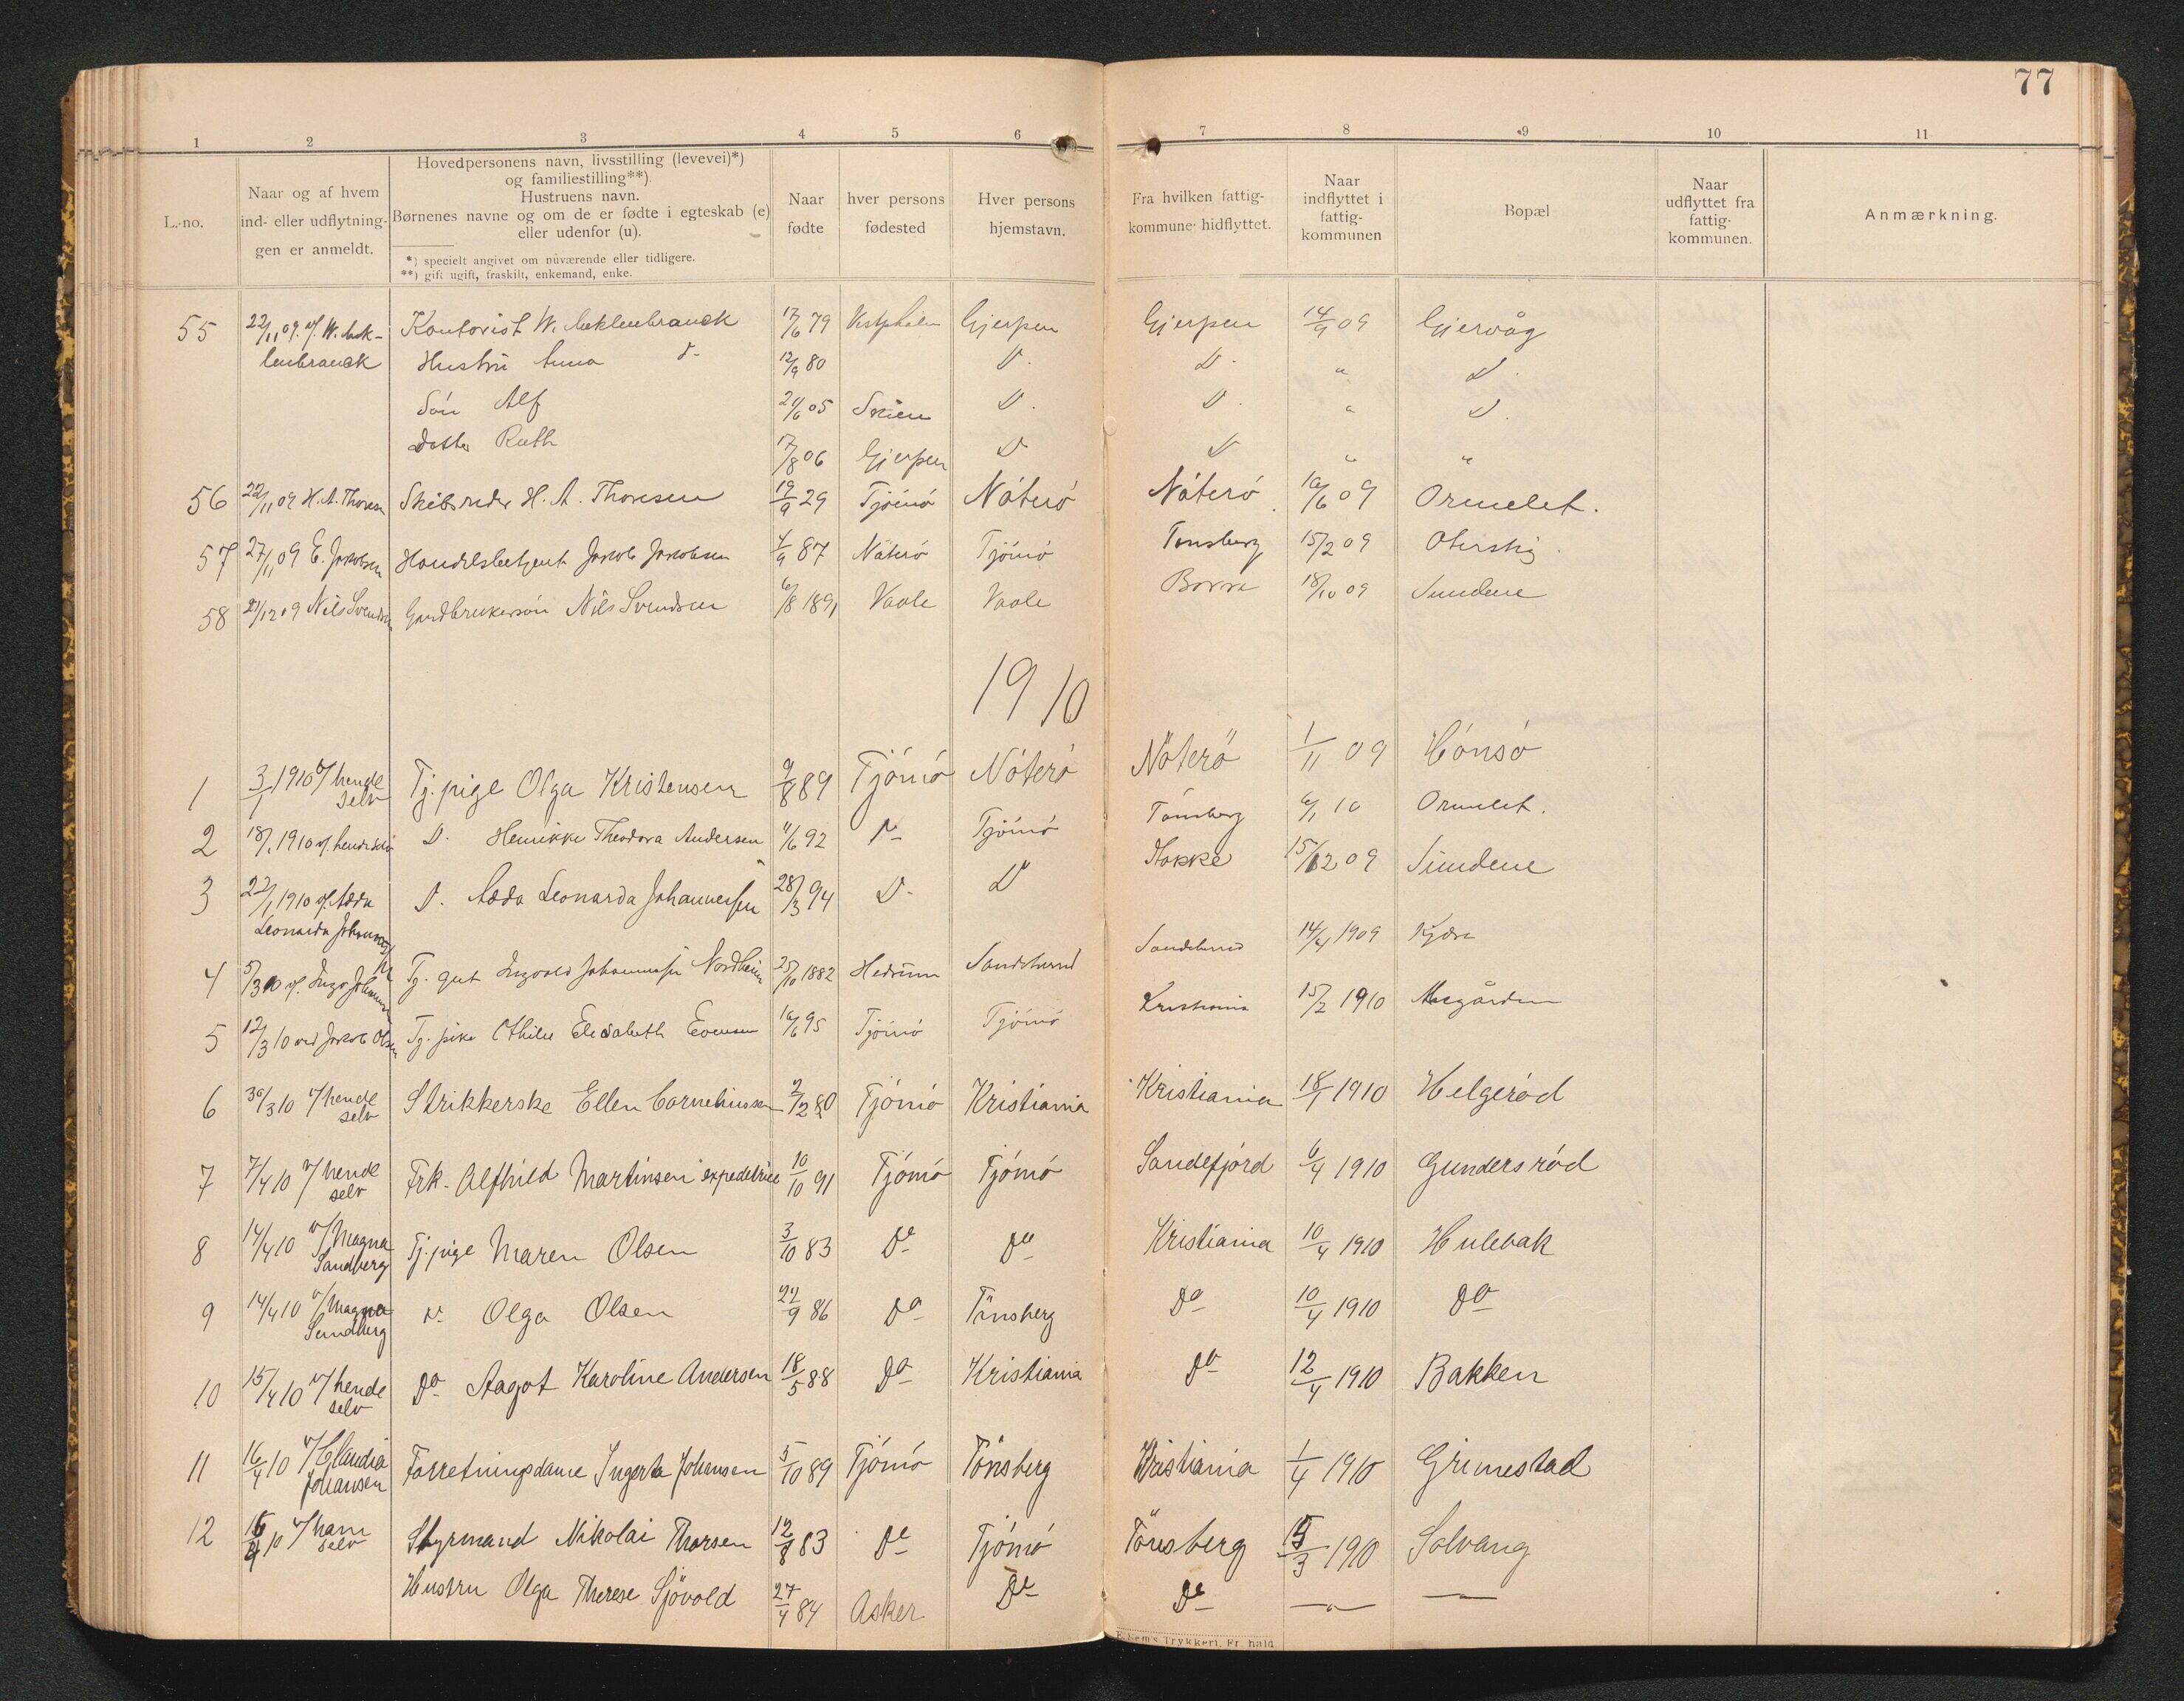 77
1 2 3 4 5 6 7 8 9 10 11
L.-no.
Naar og af hvem
ind- eller udflytnin-
gen er anmeldt.
Hovedpersonens navn, livsstilling (levevei)*)
og familiestilling**).
Hustruens navn.
Børnenes navne og om de er fødte i egteskab (e)
eller udenfor (u).
*) specielt angivet om nuværende eller tidligere.
**) gift ugift, fraskilt, enkemand, enke.
Naar
fødte
hver persons
fødested
Hver persons
hjemstavn.
Fra hvilken fattig-
kommune hidflyttet.
Naar
indflyttet i
fattig-
kommunen
Bopæl
Naar
udflyttet fra
fattig-
kommunen.
Anmærkning.
55 22/11 09 Kontorist W. 17/6 79 Gjerpen Gjerpen 14/9 09 Gjervåg
Hustru Anna D- 12/9 80 D. D- " D.
Sön Alf 21/6 05 Skien D. D. " D.
Datter Ruth 17/8 06 Gjerpen D D " "
56 22/11 09 H. A. Thoresen Skibsreder H. A. Thoresen 19/9 29 Tjömö Nöterö Nöterö 10/6 09 Ormelet.
57 27/11 09 E. Jakobsen Handelsbetjent Jakob Jakobsen 4/9 87 Nöterö Tjömö Tönsberg 15/2 09
58 21/12 09 Nils Svendsen Gardbrukersön Nils Svendsen 6/8 1891 Vaale Vaale Borre 18/10 09 Sundene
1910
1 3/1 1910 v/ hende selv Tj. pige Olga Kristensen 9/8 89 Tjömö Nöterö Nöterö 1/11 09 Hönsö
2 18/1 1910 v. hende selv D. Henrikke Theodora Andersen 11/6 92 D- Tjömö Tönsberg 6/1 10 Ormelet.
3 22/1 1910 v. Adda Leonarda D. Adda Leonarda Johannessen 28/3 94 D- D Stokke 15/12 09 Sundene
4 5/3 10 v. Tj. gut Ingvald Johannessen Nordheim 25/10 1882 Hedrum Sandeherred Sandeherred 14/4 1909
5 12/3 10 ved Jakob Olsen Tj. pike Othilie Elisabeth Evensen 16/6 95 Tjömö Tjömö Kristiania 15/2 1910
6 30/3 10 v/ hende selv Strikkerske Ellen Corneliussen 2/12 80 Tjömö Kristiania Kristiania 18/1 1910 Helgeröd
7 7/4 10 v/ hende selv Frk. Alfhild Martinsen expeditrice 10/10 91 Tjömö Tjömö Sandefjord 6/4 1910 Gundersröd
8 14/4 10 v/ Magna Sandberg Tj. pige Maren Olsen 3/10 83 Do Do Kristiania 10/4 1910 Hulebak
9 14/4 10 v/ Magna Sandberg D- Olga Olsen 24/9 86 Do Tönsberg Do 10/4 1910 Do
10 15/4 10 v/ hende selv Do Aagot Karoline Andersen 18/5 88 Do Kristiania Do 12/4 1910 Bakken
11 16/4 10 v/ Claudia Johansen Forretningsdame Ingerta Johansen 5/10 89 Tjömö Tönsberg Kristiania 1/4 1910 Grimestad
12 16/4 10 v/ ham selv Styrmand Nikolai Thorsen 12/8 83 Do Tjömö Tönsberg 15/3 1910 Solvang
Hustru Olga Therese Sjövold 27/4 84 Asker Do Do —"— —
E. Sem's Trykkeri, Fr.hald